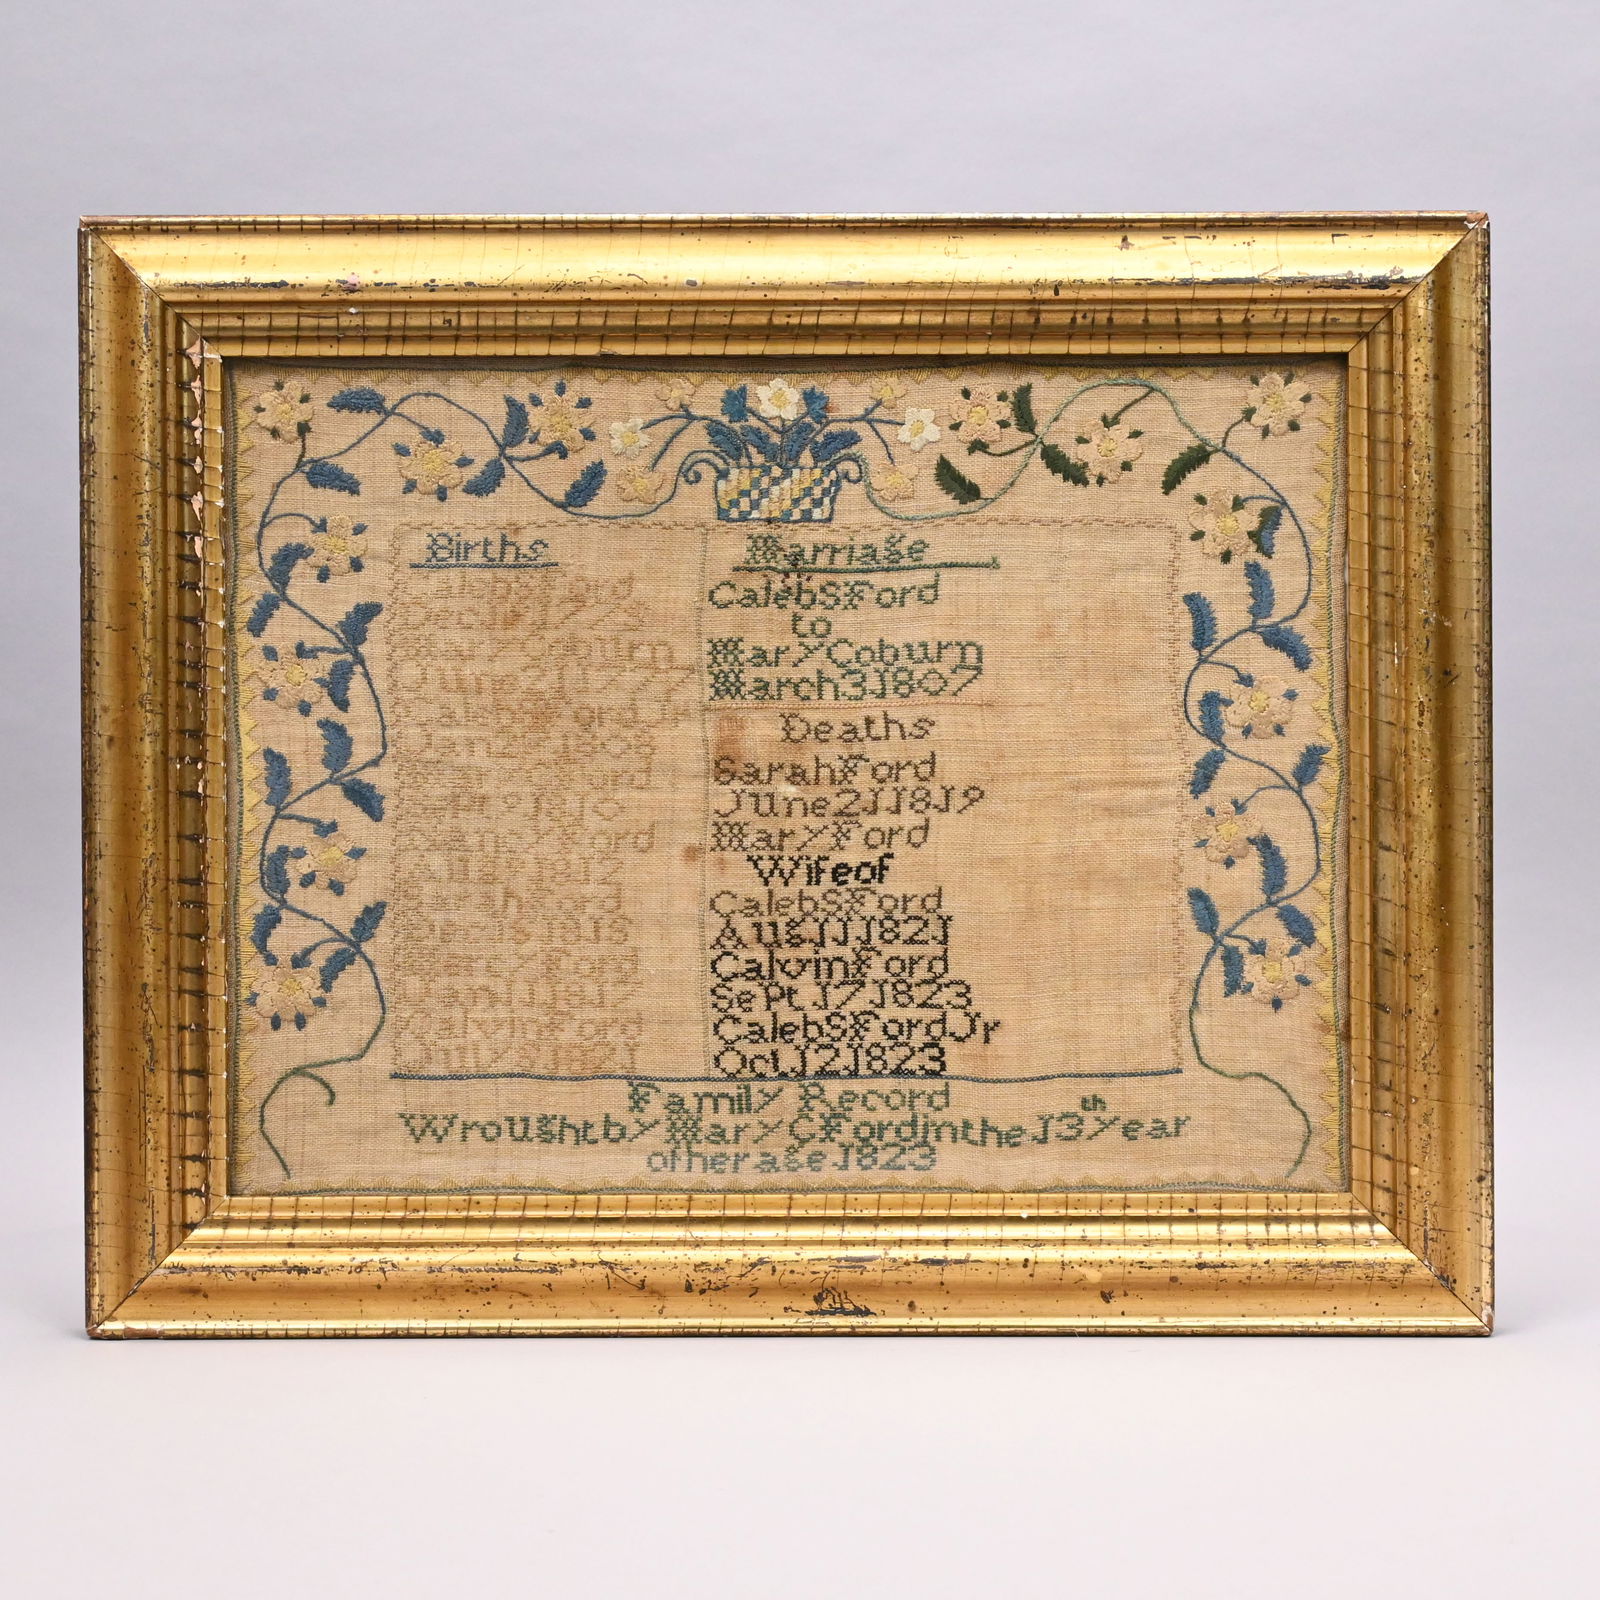 Births
Caleb S Ford
Mary Coburn
June 21 1777
Caleb S Ford Jr
1808
Ford
1810
Ford
Aug 1812
Sarah Ford
Dec 1815
Ford
Jan 11 1817
Calvin Ford
July 1821
Marriage
Caleb S Ford
to
Mary Coburn
March 3 1807
Deaths
Sarah Ford
June 21 1819
Mary Ford
Wife of
Caleb S Ford
Aug 11 1821
Calvin Ford
Sept 17 1823
Caleb S Ford Jr
Oct 12 1823
Family Record
Wrought by Mary C Ford in the 13th year
of her age 1823